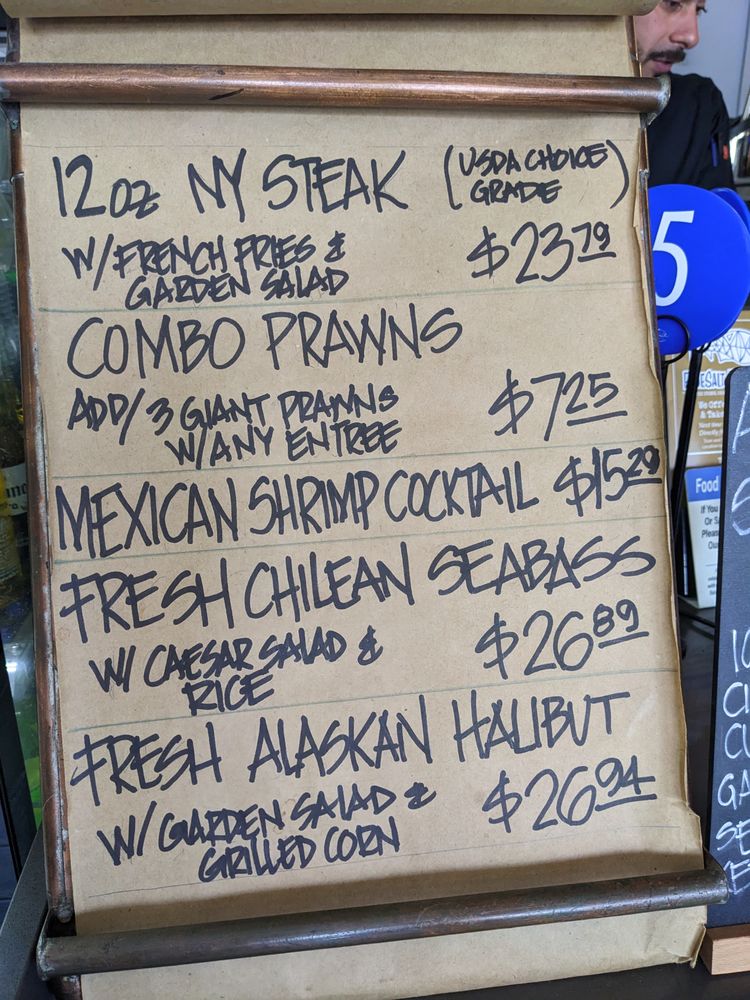 12oz NY STEAK (USDA CHOICE GRADE)
W/FRENCH FRIES &
GARDEN SALAD $23.79
COMBO PRAWNS
ADD/3 GIANT PRAWNS
W/ANY ENTREE $7.25
MEXICAN SHRIMP COCKTAIL $15.29
FRESH CHILEAN SEABASS
W/ CAESAR SALAD &
RICE $26.89
FRESH ALASKAN HALIBUT
W/ GARDEN SALAD &
GRILLED CORN $26.94
5
Food
If You